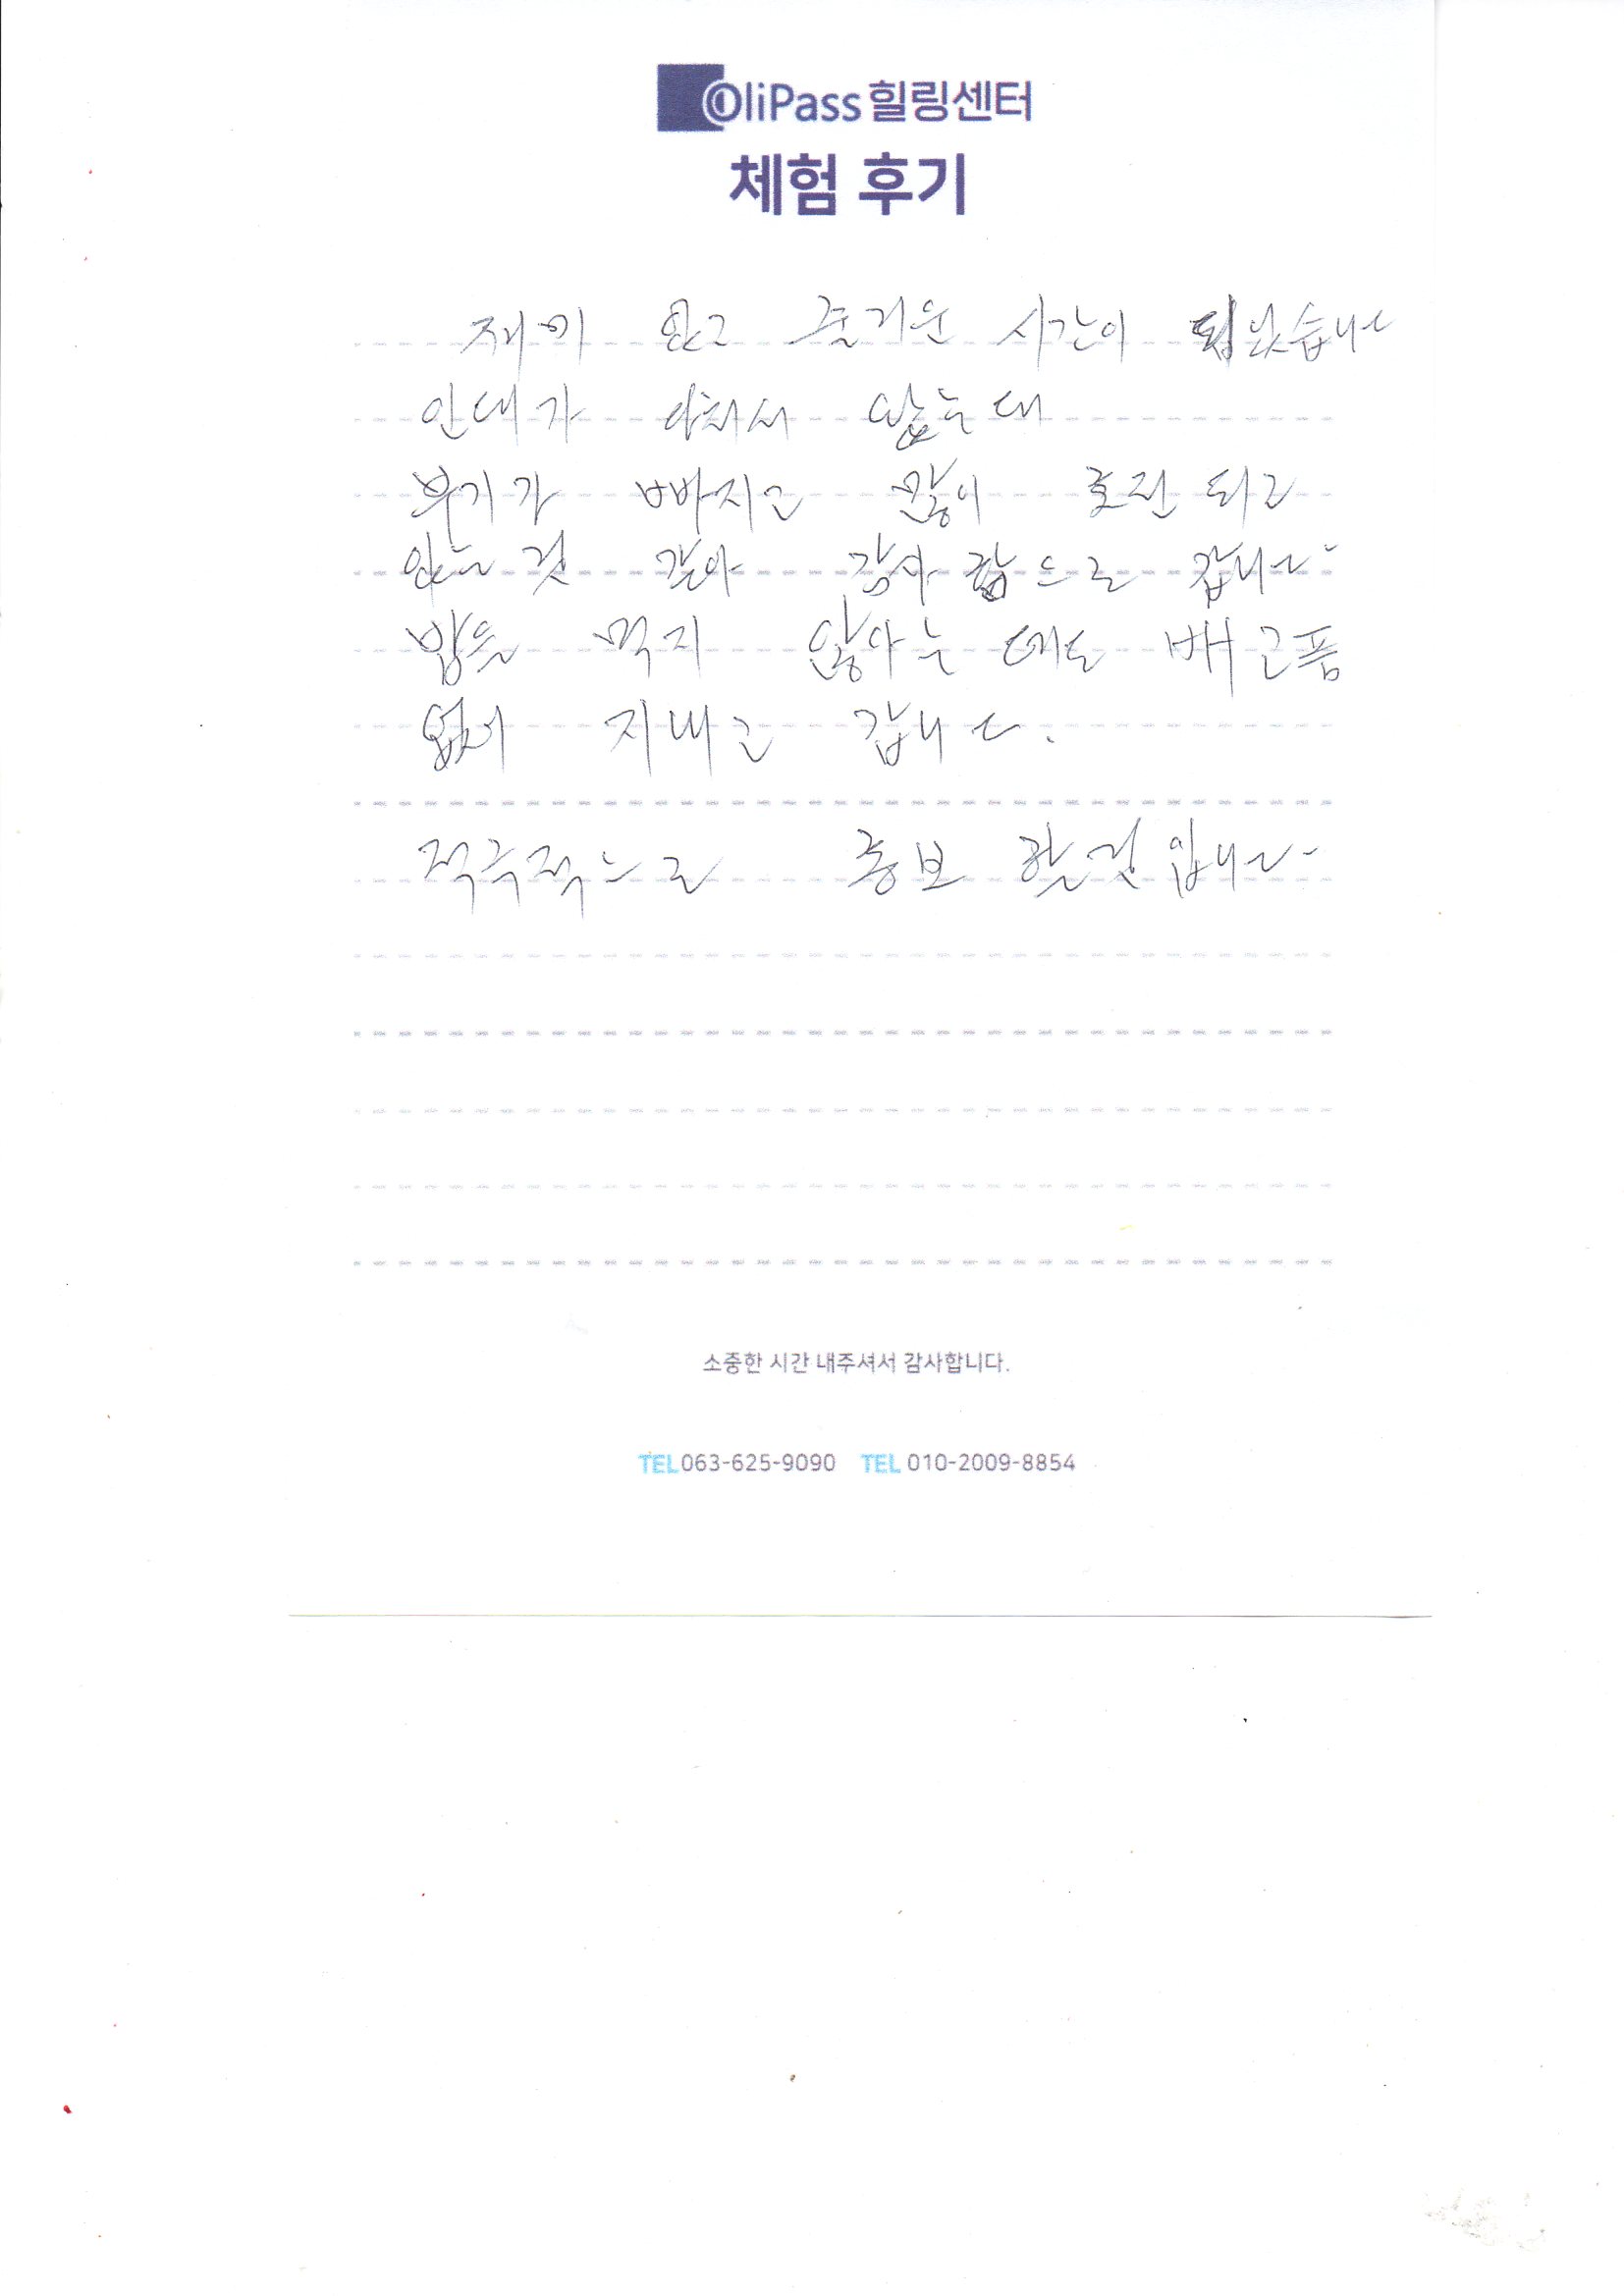 OliPass 힐링센터
체험 후기
재미 있고 즐거운 시간이 되었습니다
인대가 다쳐서 왔는데
부기가 빠지고 많이 호전 되고
있는 것 같아 감사함으로 갑니다
밥을 먹지 않아는 데도 배고픔
없이 지내고 갑니다.
적극적으로 홍보 할 것 입니다
소중한 시간 내주셔서 감사합니다.
TEL 063-625-9090 TEL 010-2009-8854